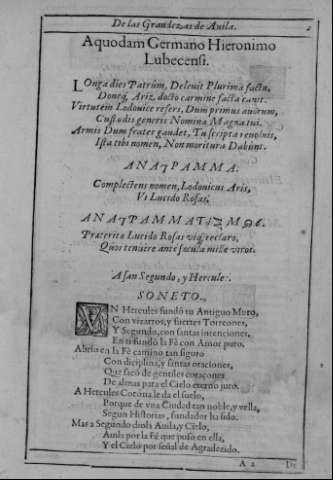 De las Grandezas de Auila.
A quodam Germano Hieronimo
Lubecensi.
LOnga dies Patrũm, Deleuit Plurima facta,
Donec Ariz docto carmine facta canit.
Virtutem Lodouice refers, Dum primus auorum,
Custodis generis Nomina Magna tui.
Armis Dum frater gaudet, Tu scripta reuoluis,
Ista tibi nomen, Non moritura Dabũnt.
ANAγRAMMA.
Complectens nomen, Lodonicus Aris,
Vt Lucido Rosas.
ANAγRAMMATIΣMΩS.
Præterita Lucido Rosas reclaro,
Quos tenuere ante sæcula mille viros.
A san Segundo, y Hercules.
SONETO.
VN Hercules fundò tu Antiguo Muro,
Con vizarros, y fuertes Torreones,
Y Segundo, con santas intenciones,
En ti fundò la Fè con Amor puro.
Abrio en la Fè camino tan siguro
Con diciplina, y santas oraciones,
Que sacò de gentiles coraçones
De almas para el Cielo eterno juro.
A Hercules Corona le da el suelo,
Porque de vna Ciudad tan noble, y vella,
Segun Historias, fundador ha sido.
Mas a Segundo diola Auila, y Cielo,
Auila por la Fè que puso en ella,
Y el Cielo por señal de Agradezido.
A 2 De